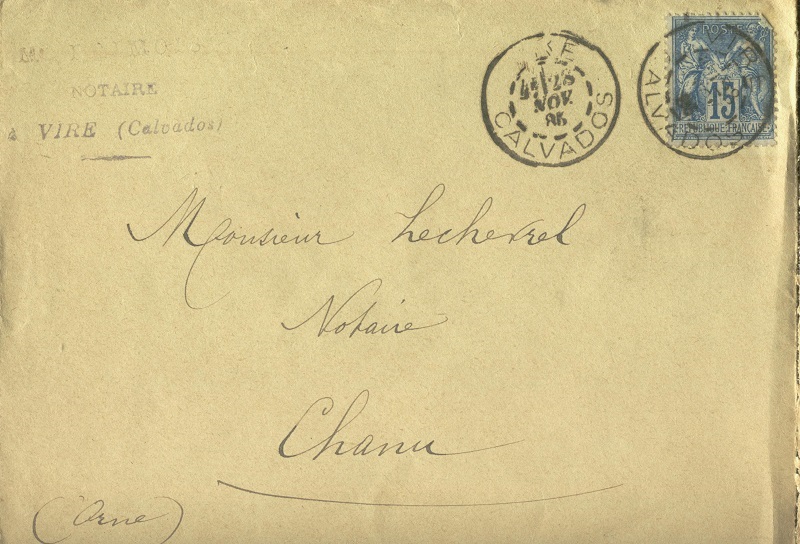 NOTAIRE
à VIRE (Calvados)
VIRE
28
NOV.
85
CALVADOS
POSTES
15
REPUBLIQUE FRANCAISE
CALVADOS
Monsieur Lecherrel
Notaire
Chanu
(Orne)